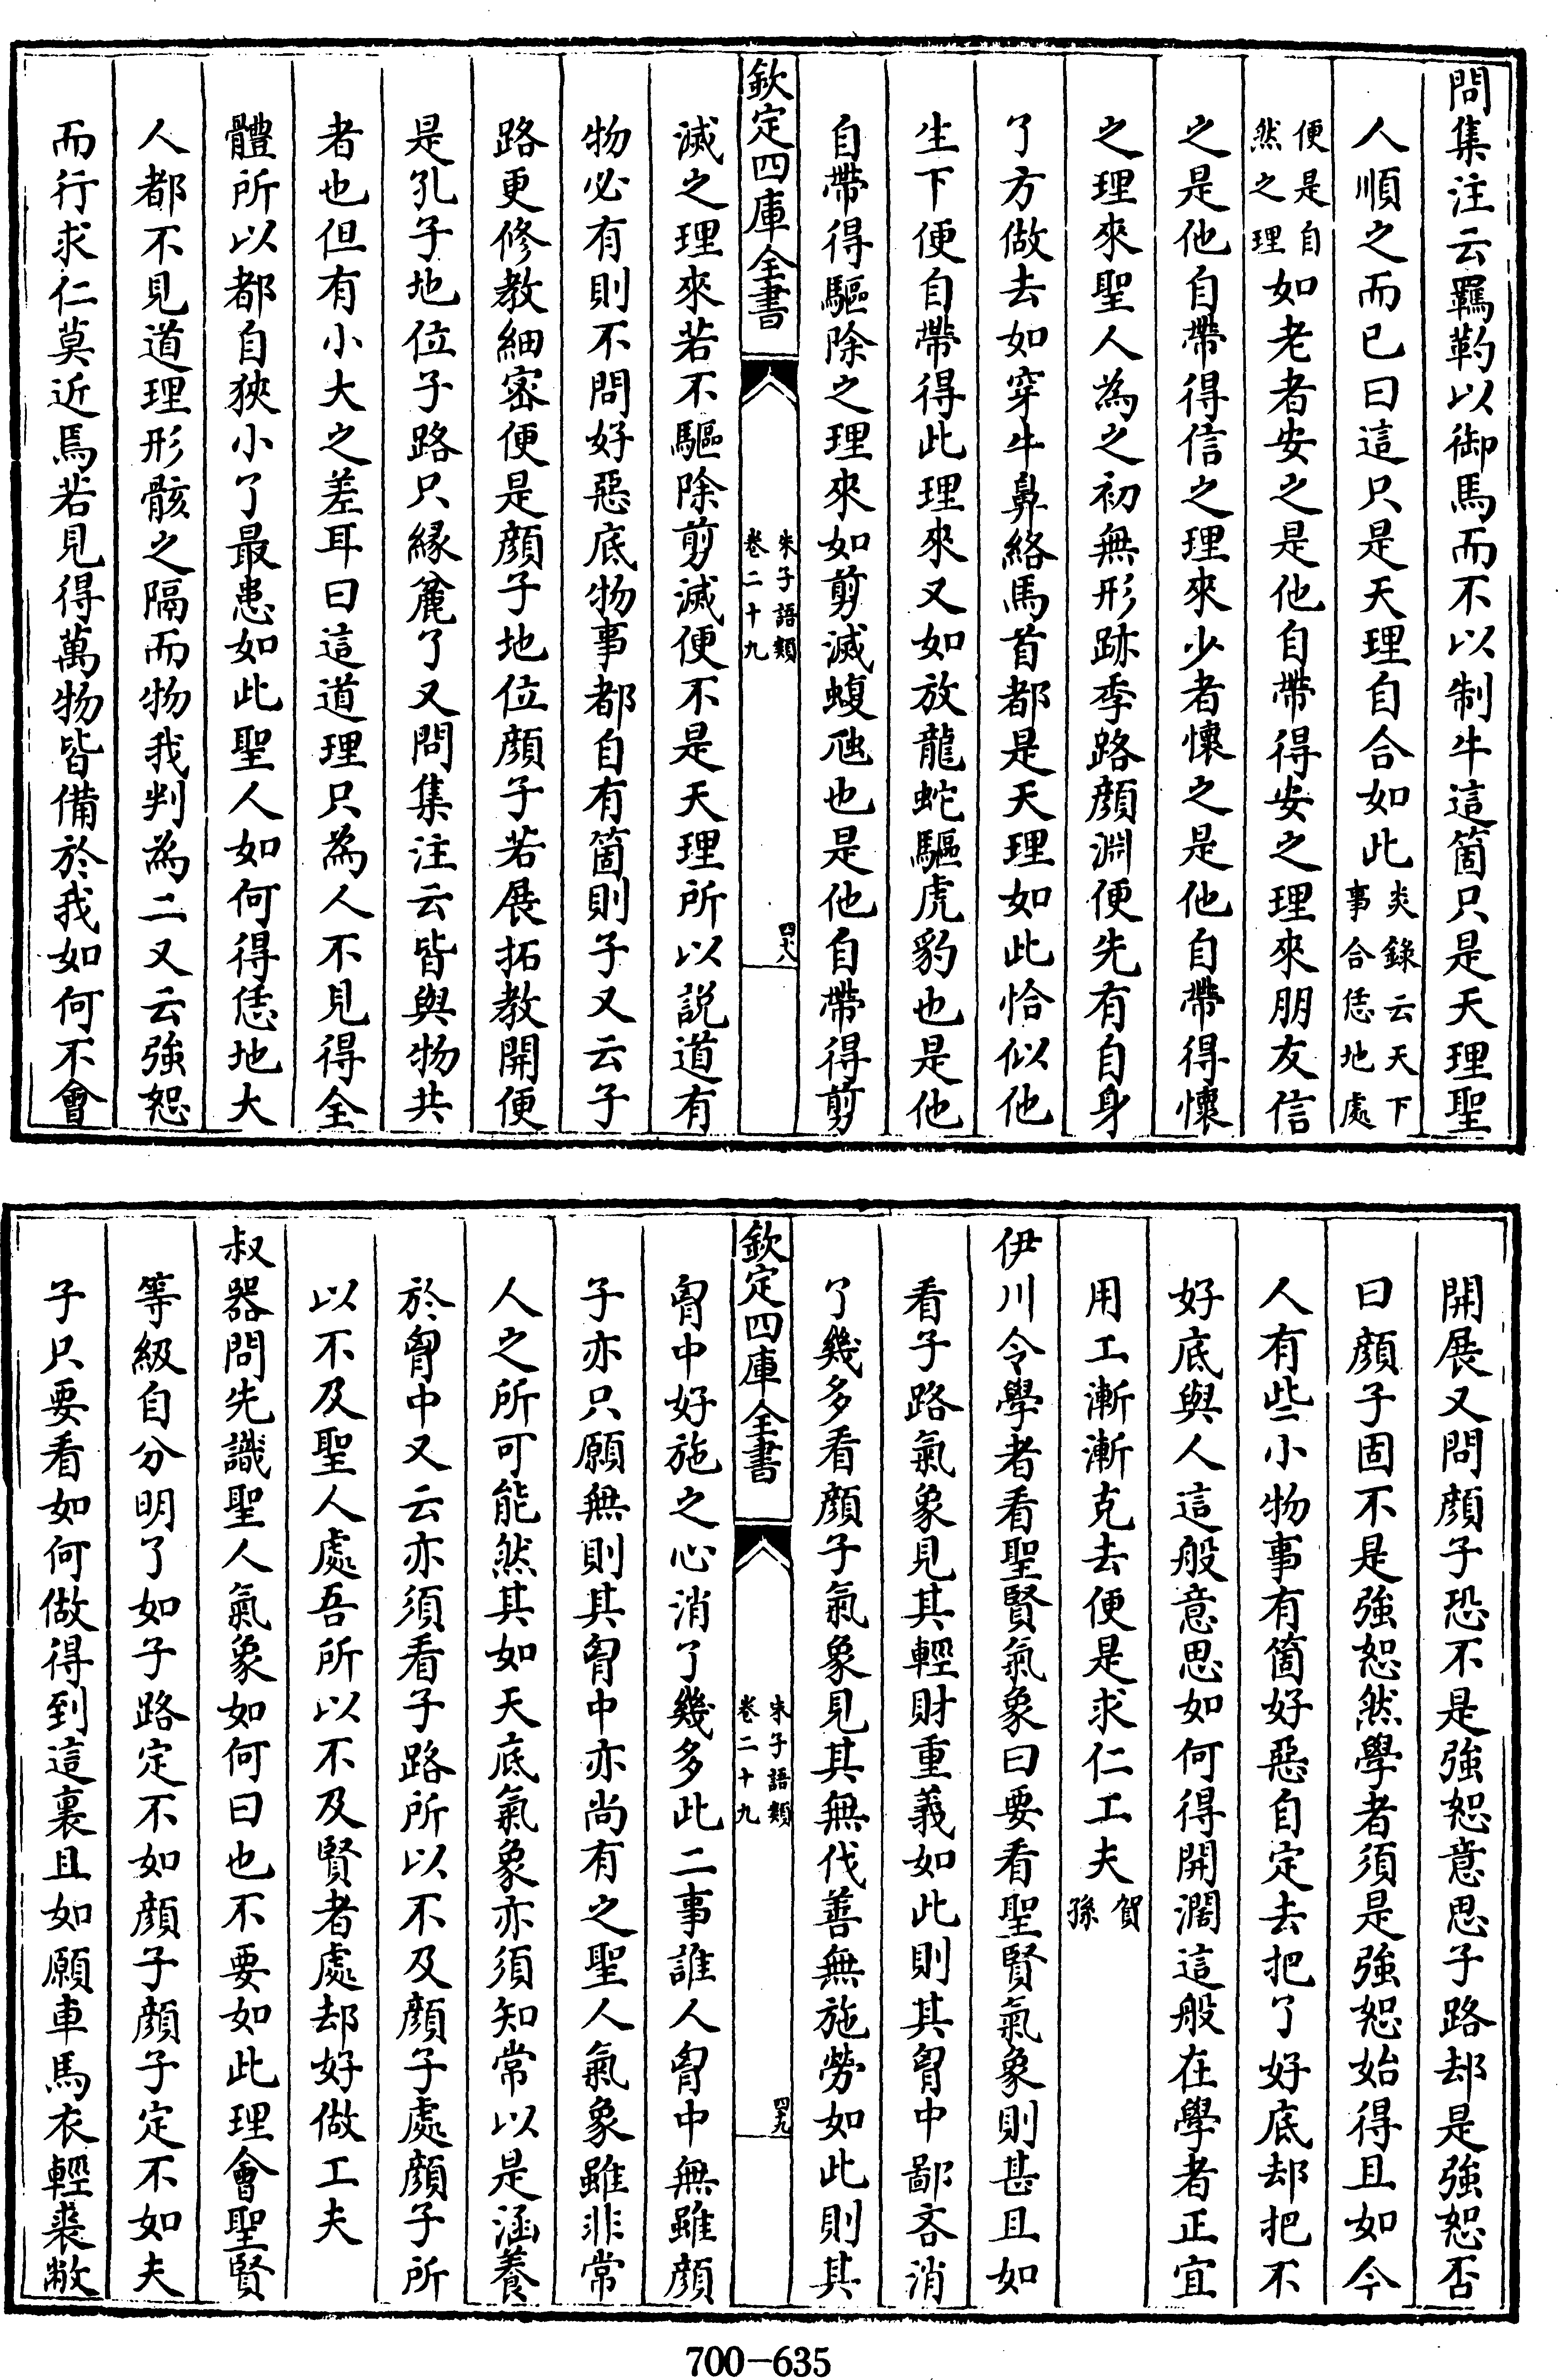 問集注云羈靮以御馬而不以制牛這箇只是天理聖
人順之而已曰這只是天理自合如此炎錄云天下事合恁地處
便是自然之理如老者安之是他自帶得安之理來朋友信
之是他自帶得信之理來少者懷之是他自帶得懷
之理來聖人為之初無形跡季路顔淵便先有自身
了方做去如穿牛鼻絡馬首都是天理如此恰似他
生下便自帶得此理來又如放龍蛇驅虎豹也是他
自帶得驅除之理來如剪滅蝮虺也是他自帶得剪
欽定四庫全書 朱子語類卷二十九 四八
滅之理來若不驅除剪滅便不是天理所以説道有
物必有則不問好惡底物事都自有箇則子又云子
路更修教細密便是顔子地位顔子若展拓教開便
是孔子地位子路只緣麄了又問集注云皆與物共
者也但有小大之差耳曰這道理只為人不見得全
體所以都自狹小了最患如此聖人如何得恁地大
人都不見道理形骸之隔而物我判為二又云強恕
而行求仁莫近焉若見得萬物皆備於我如何不會
開展又問顔子恐不是強恕意思子路却是強恕否
曰顔子固不是強恕然學者須是強恕始得且如今
人有些小物事有箇好惡自定去把了好底却把不
好底與人這般意思如何得開濶這般在學者正宜
用工漸漸克去便是求仁工夫賀孫
伊川令學者看聖賢氣象曰要看聖賢氣象則甚且如
看子路氣象見其輕財重義如此則其胷中鄙吝消
了幾多看顔子氣象見其無伐善無施勞如此則其
欽定四庫全書 朱子語類卷二十九 四九
胷中好施之心消了幾多此二事誰人胷中無雖顔
子亦只願無則其胷中亦尚有之聖人氣象雖非常
人之所可能然其如天底氣象亦須知常以是涵養
於胷中又云亦須看子路所以不及顔子處顔子所
以不及聖人處吾所以不及賢者處却好做工夫
叔器問先識聖人氣象如何曰也不要如此理會聖賢
等級自分明了如子路定不如顔子顔子定不如夫
子只要看如何做得到這裏且如願車馬衣輕裘敝
700-635